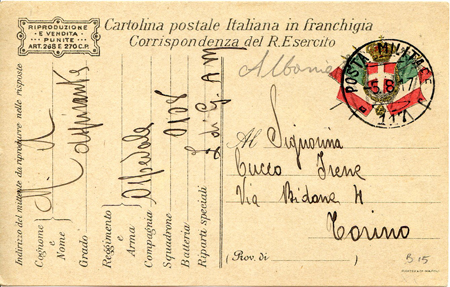 RIPRODUZIONE
E VENDITA
PUNITE
ART. 268 E 270 C.P.
Cartolina postale Italiana in franchigia
Corrispondenza del R. Esercito
Albania
POSTA MILITARE
5.8.17
Indirizzo del mittente da riprodurre nelle risposte
Cognome e Nome
Grado Aspirante
Reggimento e Arma
Compagnia Ospedale
Squadrone
Batteria 0108
Riparti speciali
Al Signorina
Cucco Irene
Via Bidone 4
Torino
(Prov. di )
B 15